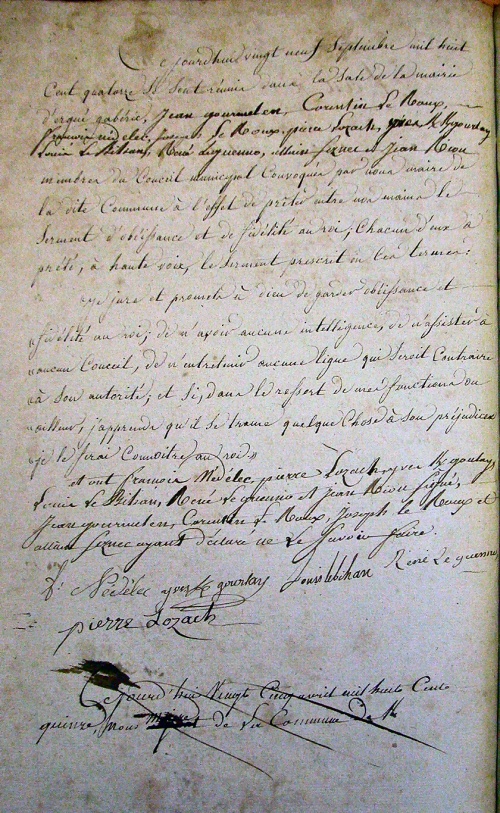 Cejourd'hui vingt neuf Septembre mil huit
Cent quatorze Se Sont réunis dans la Sale de la mairie
d'ergué gabéric, Jean gourmelen, Corentin Le Roux,
françois nédélec, Joseph Le Roux, pierre Lozach, yves K/gourlay
Louis Le Bihan, René Leguenno, allain feznec et Jean Riou
membres du Conseil municipal Convoqués par nous maire de
la dite Commune à l'effet de prêter entre nos mains le
Serment d'obéissance et de fidélité au roi; Chacun d'eux à
prété, à haute voix, le Serment prescrit en Ces termes:
«je jure et promets à dieu de garder obéissance et
«fidélité au roi; de n'avoir aucune intelligence, de n'assister à
«aucun Conseil, de n'entretenir aucune ligue qui Seroit Contraire
«à Son autorité; et Si, dans le ressort de mes fonctions ou
«ailleurs, j'apprends qu'il Se trame quelque Chose à Son préjudice
«je le ferai Connoitre au roi»
et ont françois Nédélec, pierre Lozach, yves K/gourlay,
Louis Le Bihan, René Le guenno et Jean Riou Signé,
Jean gourmelen, Corentin Le Roux, Joseph Le Roux et
allain feznec ayant déclaré ne Le Savoir faire.
f. Nédélec yves K/gourlay Louis lebihan René Le guenno
pierre Lozach
Cejourd'hui Vingt Cinq avril mil huit Cent
quinze, nous maire de La Commune de